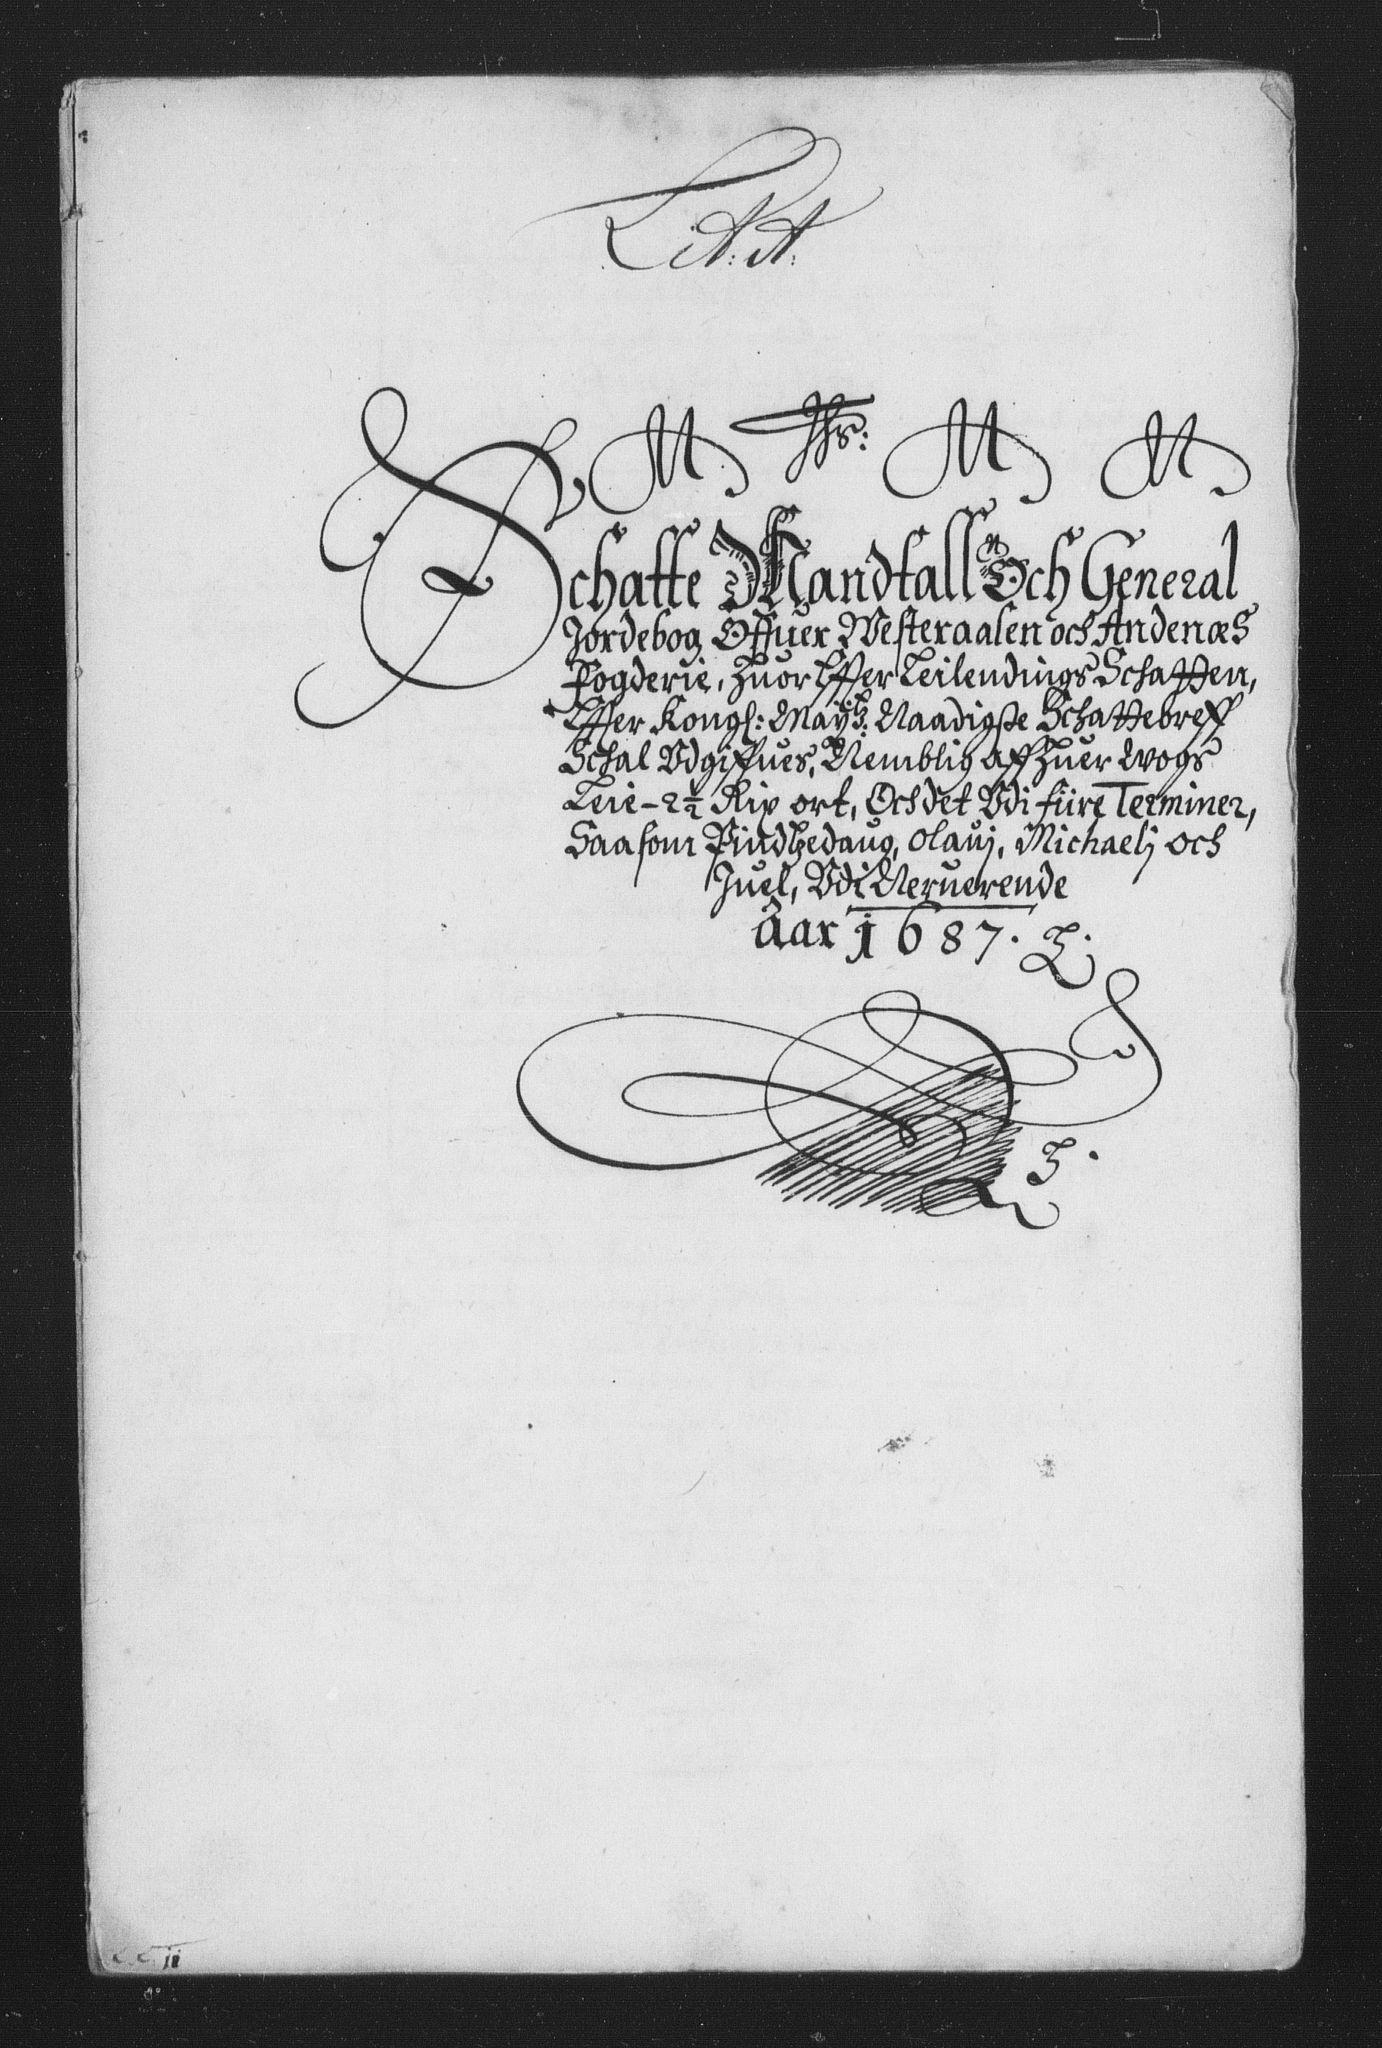 Lit: A:
Jhs:
Schatte Mandtall Och General
Jordebog Offuer Westeraalen och Andenæs
Fogderie, huor Effter Leilendings Schatten,
Effter Kongl: Mayts: Naadigste Schattebreff
Schal Udgiffues, Nemblig aff huer wogs
Leie - 2½ Rix ort, Och det Udi fiire Terminer,
Saasom Pindtzedaug, Olauj, Michaelj och
Juel, Udi Neruerende
Aar 1687.